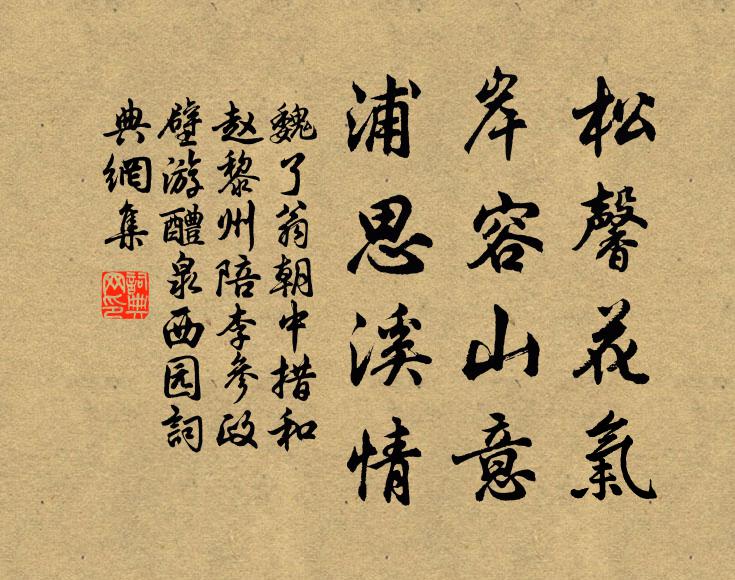 松馨花氣
岸容山意
浦思溪情
魏了翁朝中措和
赵黎州陪李參政
壁游醴泉西园詞
典網集
詞典
网印